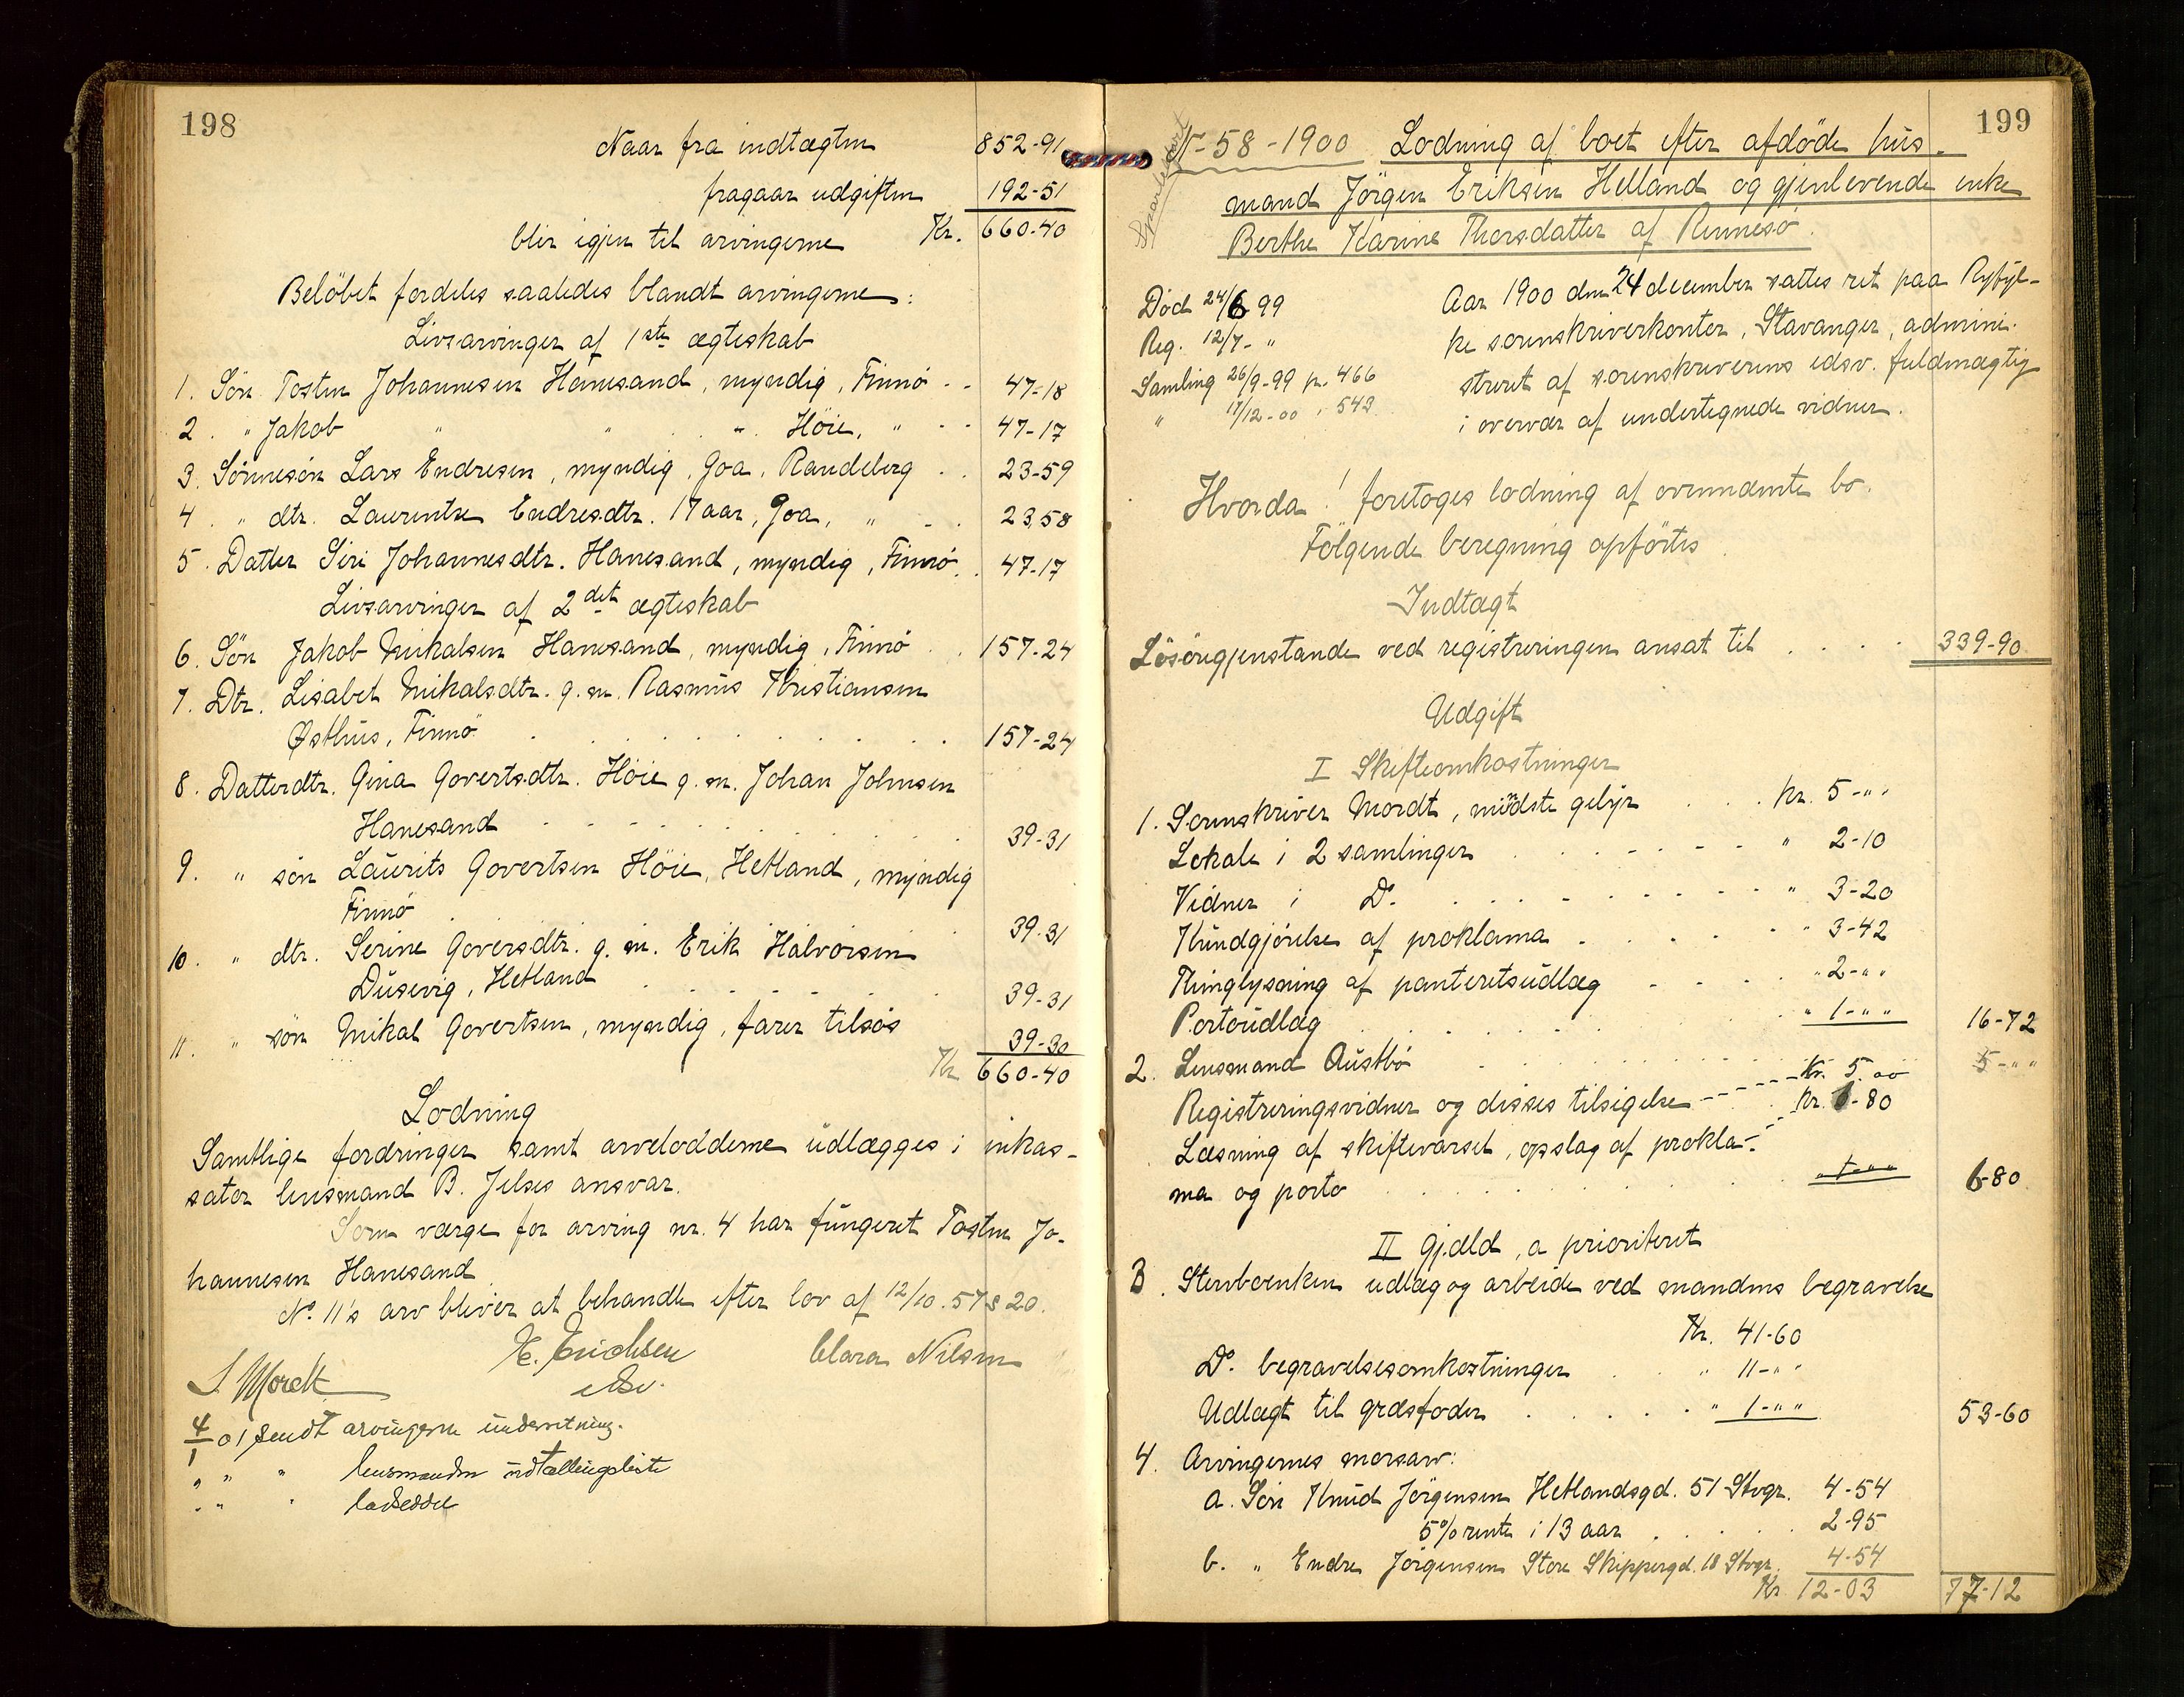 198
Naar fra indtægten 852-91
fragaar udgiften 192-51
blir igjen til arvingerne Kr. 660-40
Beløbet fordeles saaledes blandt arvingerne:
Livsarvinger af 1ste ægteskab
1. Søn Tosten Johannesen Hanesand, myndig, Finnø - - 47-18
2. " Jakob " " " Höie, " - - 47-17
3. Sønnesøn Lars Endresen, myndig, Goa, Randeberg . . 23-59
4. " dtr. Laurentse Endresdtr. 17 aar, Goa, " - . 23,58
5. Datter Siri Johannesdtr. Hanesand, myndig, Finnö . . 47-17
Livsarvinger af 2det ægteskab
6. Sön Jakob Mikalsen Hanesand, myndig, Finnö . . 157-24
7. Dtr. Lisabet Mikalsdtr. g. m. Rasmus Kristiansen
Østhus, Finnö . . . . 157-24
8. Datterdtr. Gina Govertsdtr. Höie g. m. Johan Johnsen
Hanesand . . . . 39-31
9. " sön Laurits Govertsen Höie, Hetland, myndig
Finnö . . 39-31
10. " dtr. Serine Goversdtr. g. m. Erik Halvorsen
Dusevig, Hetland . . . . 39-31
11. " søn Mikal Govertsen, myndig, farer tilsøs 39-30
Kr 660-40
Lodning
Samtlige fordringer samt arveloddene udlægges i inkas-
sator lensmand B. Jelses ansvar.
Som værge for arving nr. 4 har fungeret Tosten Jo-
hannesen Hanesand
No 11's arv bliver at behandle efter lov af 12/10.57 § 20.
S. Mordt H. Erichsen Clara Nilsen
edsv.
4/1 01 sendt arvingerne underretning.
" " " lensmanden udtællingsliste
" " " lodseddel
199
N- 58-1900 Lodning af boet efter afdøde hus-
mand Jörgen Eriksen Helland og gjenlevende enke
Berthe Karine Thorsdatter af Rennesö.
Död 24/6 99
Reg. 12/7- "
Samling 26/9-99 p. 466
" 17/12-00 " 543
Aar 1900 den 24 december sattes ret paa Ryfyl-
ke sorenskriverkontor, Stavanger, admini-
streret af sorenskriverens edsv. fuldmægtig
i overvær af undertegnede vidner.
Hvorda! foretoges lodning af ovennævnte bo.
Følgende beregning opførtes
Indtægt
Lösöregjenstande ved registreringen ansat til . . . . 339-90
Udgift
I Skifteomkostninger
1. Sorenskriver Mordt, mindste gebyr . . . Kr. 5-""
Lokale i 2 samlinger . . . . " 2-10
Vidner i Do. . . . . " 3-20
Kundgjørelse af proklama . . . . " 3-42
Thinglysning af panteretsudlæg - . . . " 2-""
Portoudlæg . . . . " 1-"" 16-72
2. Lensmand Austbø . . . . Kr. 5.00 5-""
Registreringsvidner og disses tilsigelse - - - - Kr. 6-80
Læsning af skiftevarsel, opslag af prokla-
ma og porto . . . . " 1-"" 6-80
II Gjæld, a prioriteret
3. Stervboenken udlæg og arbeide ved mandens begravelse
Kr. 41-60
Do. begravelsesomkostninger . . " 11-""
Udlægt til græsfoder . . . . " 1-"" 53-60
4. Arvingernes morsarv:
a. Søn Knud Jörgensen Hetlandsgd. 51 Stvgr. 4-54
5% rente i 13 aar . . . . 2-95
b. " Endre Jörgensen Store Skippergd. 18 Stvgr. 4-54
Kr. 12-03 77-12